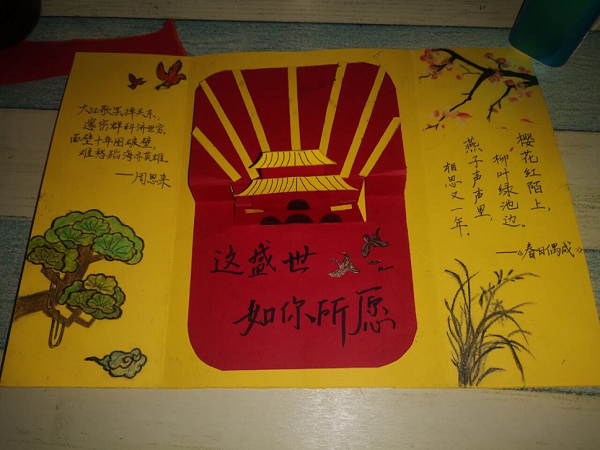 大江歌罢掉头东、
邃密群科济世穷，
面壁十年图破壁，
难酬蹈海亦英雄
——周恩来
这盛世
如你所愿
樱花红陌上，
柳叶绿池边。
燕子声声里，
相思又一年。
——《春日偶成》